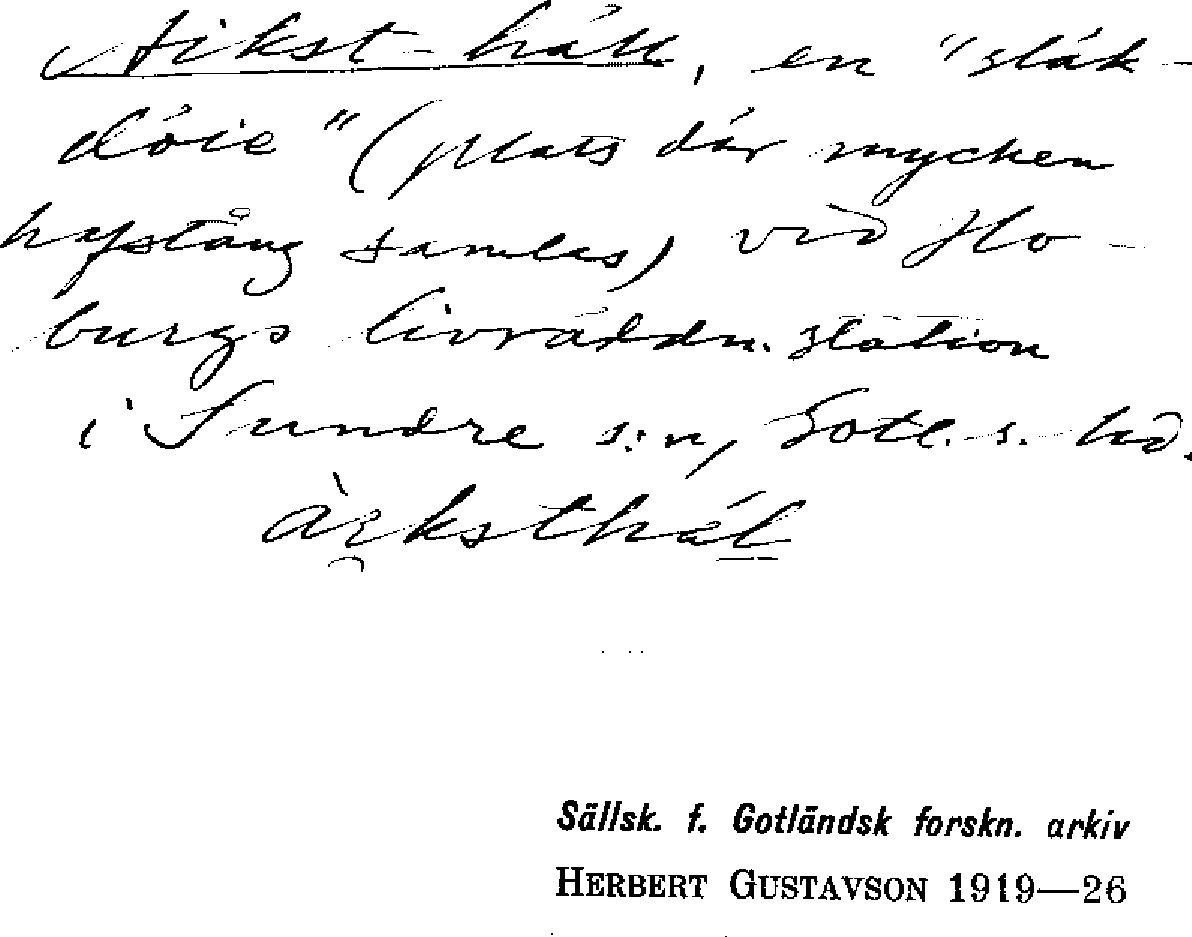 Aikst-håll, en "släk-
döie" (plats där mycken
hafstång samlas) vid Ho-
burgs livräddn.station
i Sundre s:n, Gotl. s. hd.
Sällsk. f. Gotländsk forskn. arkiv
HERBERT GUSTAVSON 1919—26